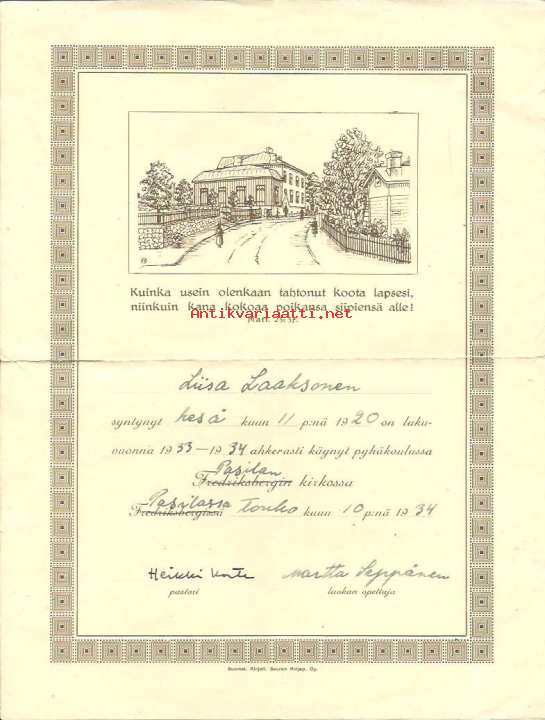 Kuinka usein olenkaan tahtonut koota lapsesi,
niinkuin kana kokoaa poikansa siipiensä alle!
Antikvariaatti.net
Matt. 23:37.
Liisa Laaksonen
syntynyt kesä kuun 11 p:nä 1920 on luku-
vuonna 1933—1934 ahkerasti käynyt pyhäkoulussa
Pasilan
Fredriksbergin kirkossa
Pasilassa
Fredriksbergissä touko kuun 10 p:nä 1934
Heikki Martta Seppänen
pastori luokan opettaja
Suomal. Kirjall. Seuran Kirjap. Oy.